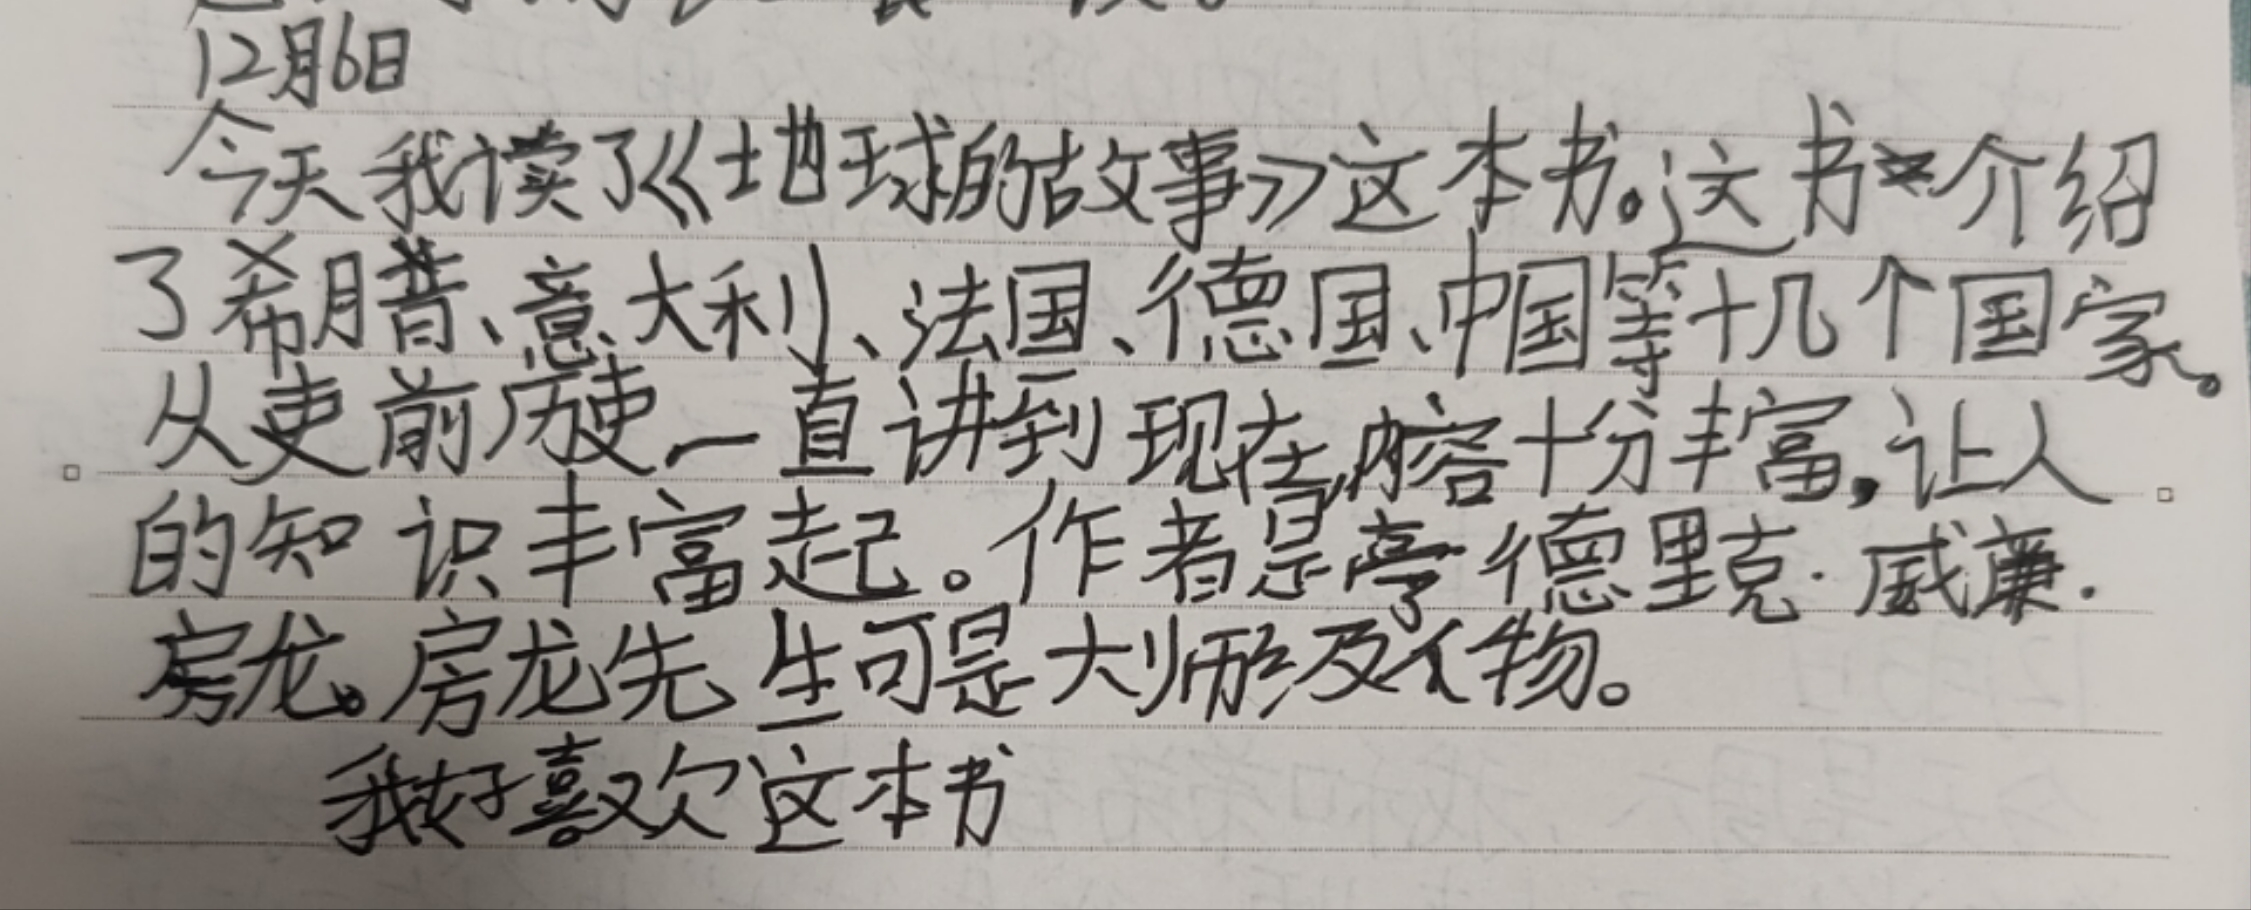 12月6日
今天我读了《地球的故事》这本书。这书介绍
了希腊、意大利、法国、德国、中国等十几个国家。
从史前历史一直讲到现在,内容十分丰富,让人
的知识丰富起。作者是亨德里克·威廉·
房龙。房龙先生可是大师形及人物。
我好喜欢这本书